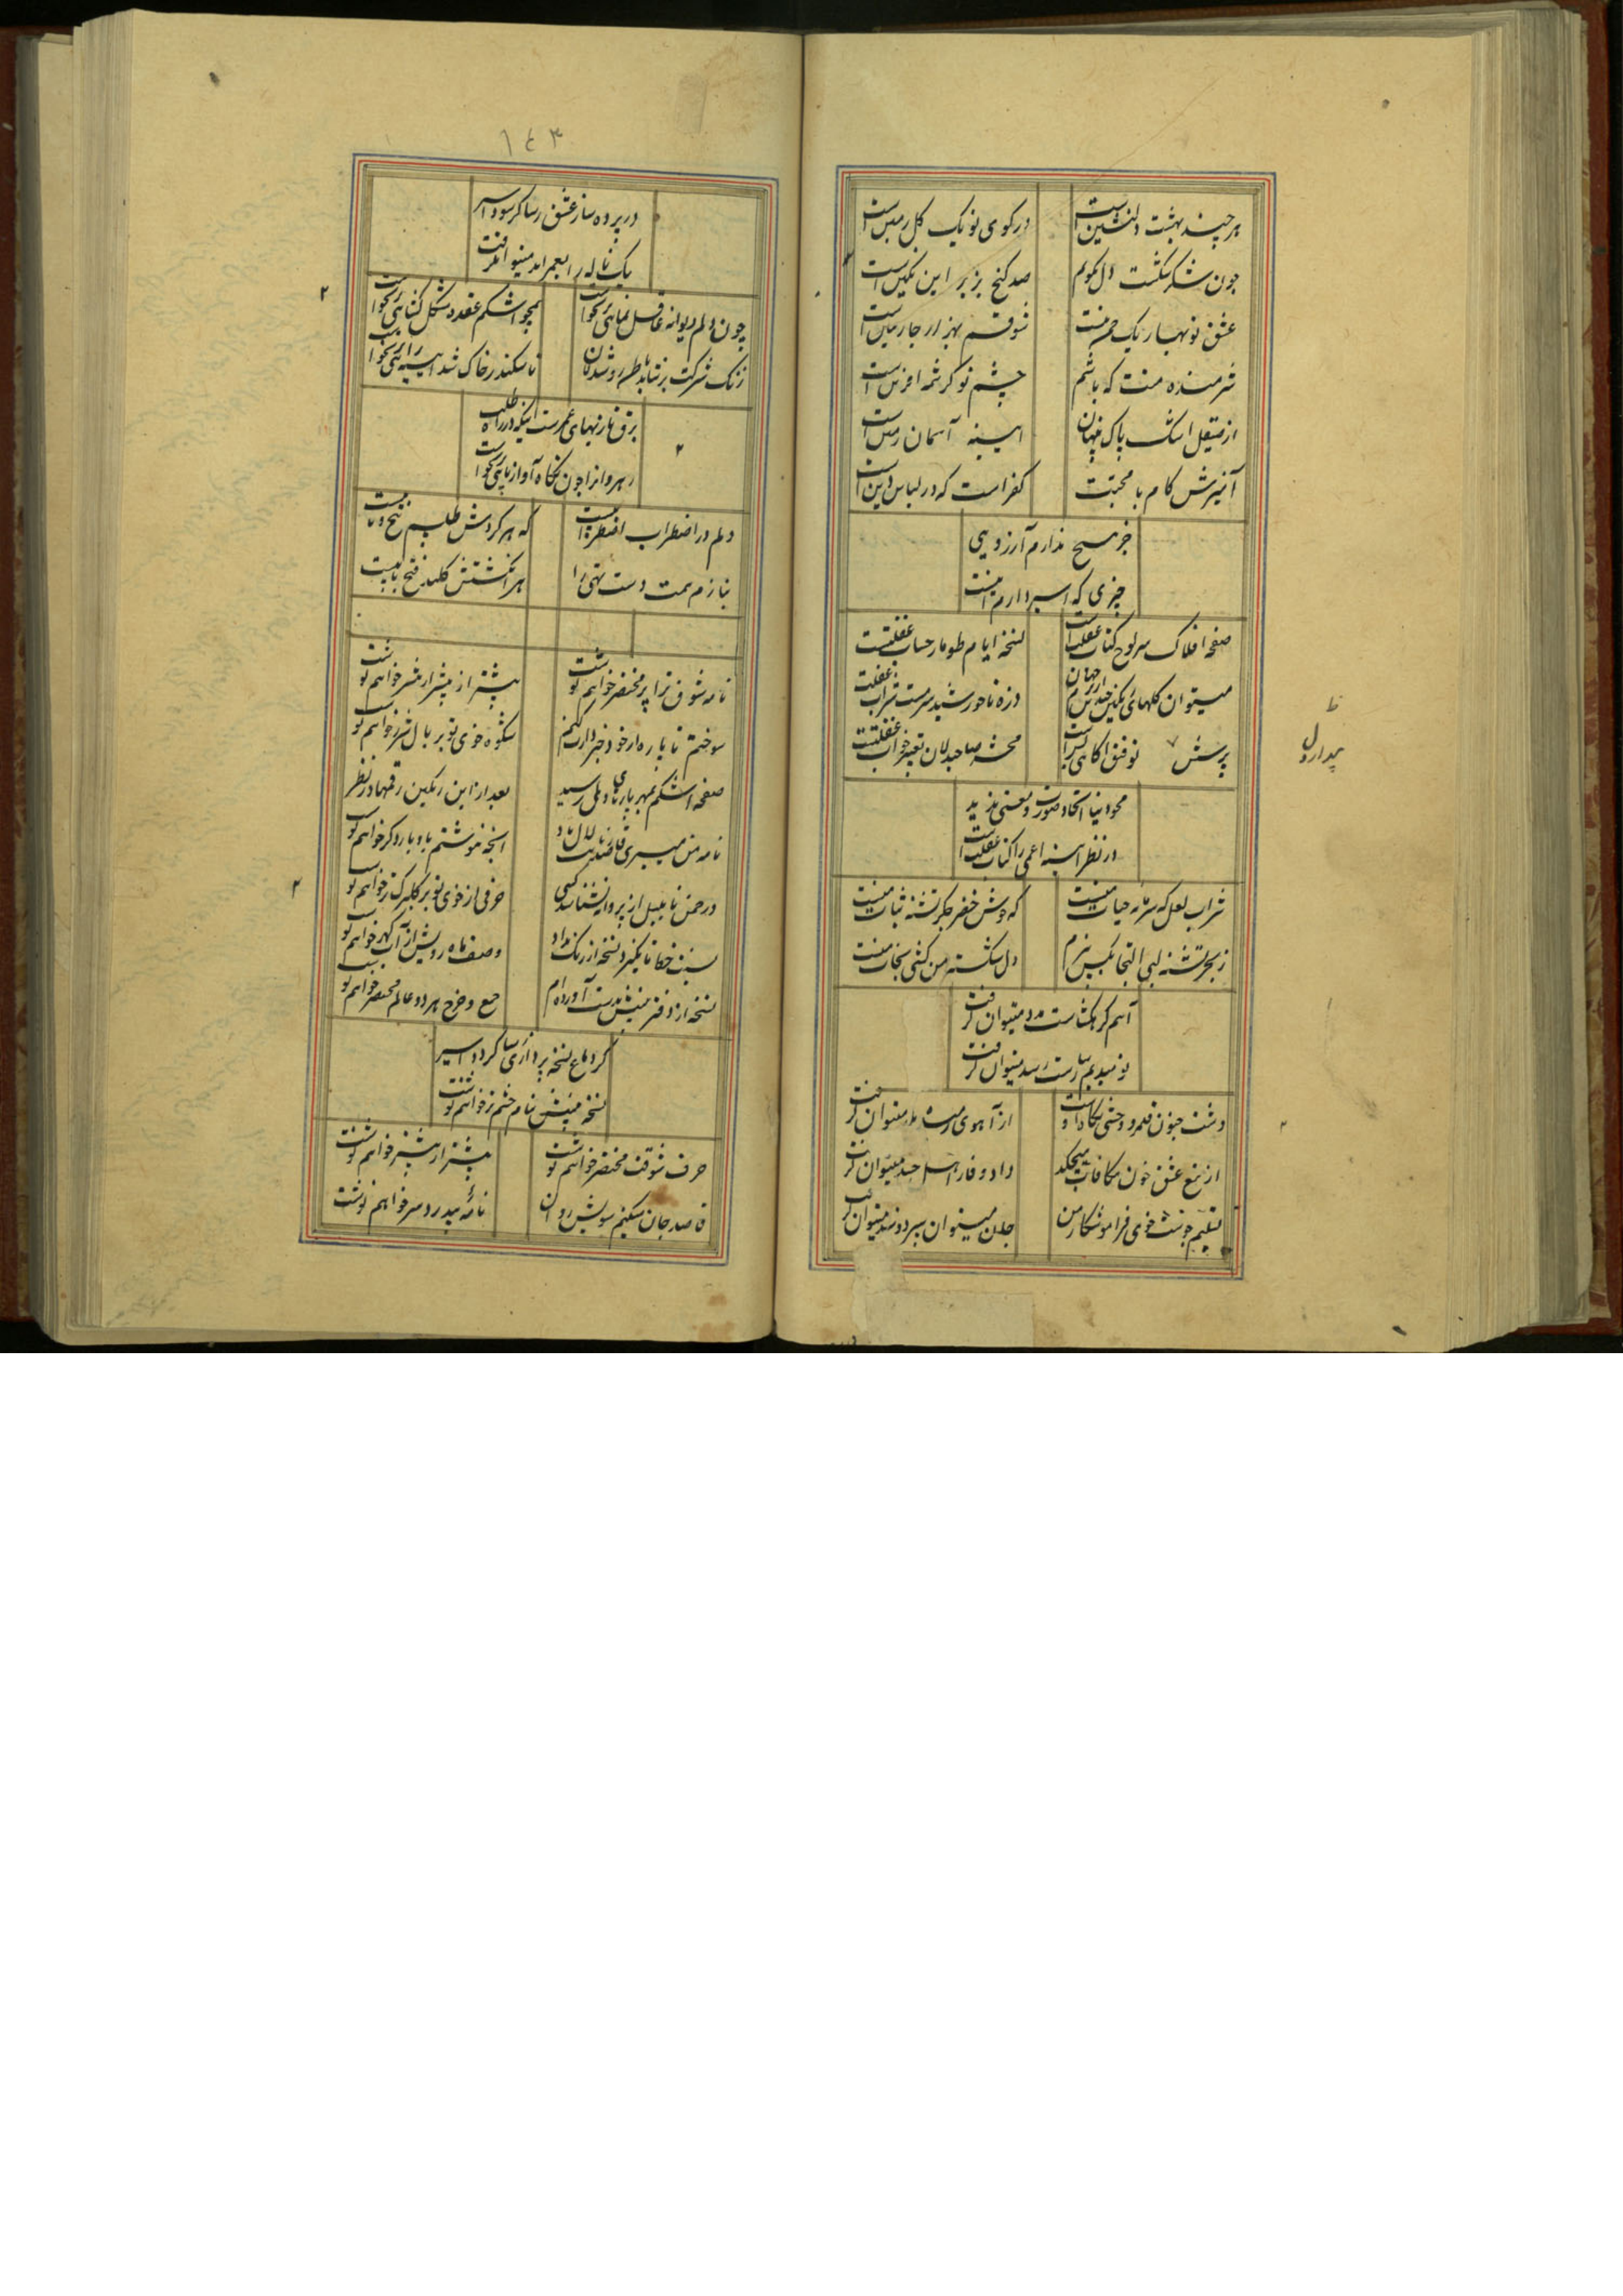 هر چند بهشت دلنشین است
در کوی تو یک گل زمین است
چون شکر شکست دل نگویم
صد گنج بزیر این نگین است
عشق تو نهبار یک چمن منت
شوقم بهزار جا رهین است
شرمنده منت که باشم
چشم تو کرشمه افرین است
از صیقل اشک پاک پنهان
ایینه آسمان زمین است
آمیزش کام با محبت
کفر است که در لباس دین است
جز هیچ ندارم آرزویی
چیزی که اسیر دارم اینست
صفحه افلاک سرلوح کتاب غفلت است
نسخه ایام طومار حساب غفلتست
میتوان گلهای رنگین چیدن از جهان
ذره تا خورشید سرمست شراب غفلت
پرسش توفیق اگاهی
محشر صاحبدلان تعبیر خواب غفلتست
محو دنیا اتحاد صورت و معنی ندید
در نظر ایینه اعمی را کتاب غفلت است
شراب لعل که سرمایه حیات منست
که جوش خضر جگر تشنه نبات منست
ز بحر تشنه لبی التجا بکس نبرم
دل شکسته من کشتی نجات منست
آهم گر هکشاست مدد میتوان گرفت
نومیدیم رساست رسد میتوان گرفت
دشت جنون قلمرو وحشی نگاه او
از آهوی رمیده میتوان گرفت
از تیغ عشق خون مکافات میچکد
داد وفا ز اهل حسد میتوان گرفت
تسلیم جوشت خوی فراموشکار من
جان میتوان سپرد و سند میتوان گرفت
۱۴۳
در پرده ساز عشق رسا گر سود اسیر
یک ناله را بعمر ابد میتوان گرفت
چون دلم دیوانه غافل نمایی برنخواست
همچو اشکم عقده مشکل گشایی برنخواست
زنگ شرکت برنتابد خاطر روشندلان
تا سکندر خاک شد ایینه رایی برنخواست
برق خارنهای عمرست اینکه در راه طلب
رهروانرا چون نگاه آواز پایی برنخواست
دلم در اضطراب اضطرابیست
که هر گردش طلسم پیچ و تابیست
بنازم همت دست تهی را
هر انگشتش کلید فتح بابیست
نامه شوق ترا پر مختصر خواهم نوشت
بیشتر از بیشتر از بیشتر خواهم نوشت
سوختم تا پاره از خود خبردارت کنم
شکوه خوی تو بر بال شرر خواهم نوشت
صفحه اشکم بمهر پاره‌های دل رسید
بعد از این رنگین رقمها در نظر
نامه من میبری قاصد زبانت لال باد
انچه ننوشتم باو بار دگر خواهم نوشت
در چمن تا بلبل از پروانه نشناسد کسی
حرفی از خوی تو بر گلبرگ تر خواهم نوشت
نسبت خطا تا نگیرد نسخه از رنگ مداد
وصف ماه رویش از آب گهر خواهم نوشت
نسخه از دفتر بینش بدست آورده‌ام
جمع و خرج هر دو عالم مختصر خواهم نوشت
گر دماغ نسخه پردازی رسا گردد اسیر
نسخه بینش بنام چشم تر خواهم نوشت
حرف شوقت مختصر خواهم نوشت
بیشتر از بیشتر خواهم نوشت
قاصد جان میکنم سویش روان
نامهٔ بیدردسر خواهم نوشت